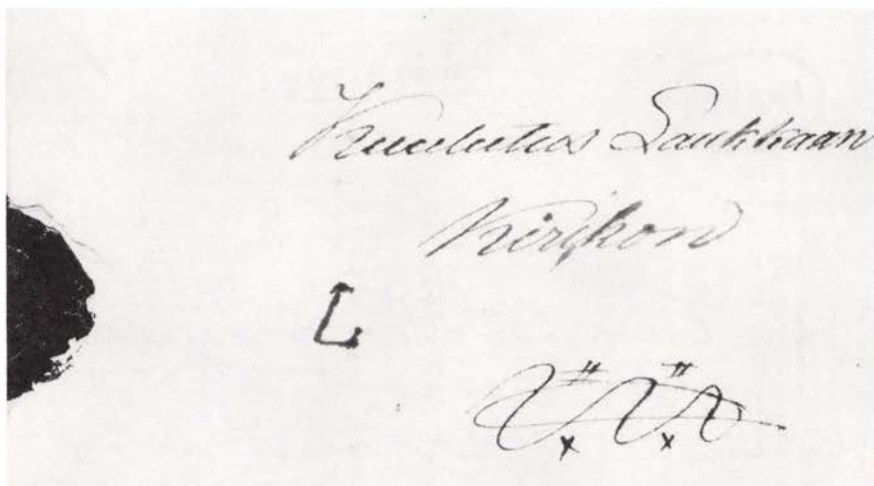 Kuulutus Laukkaan
Kirikon
L